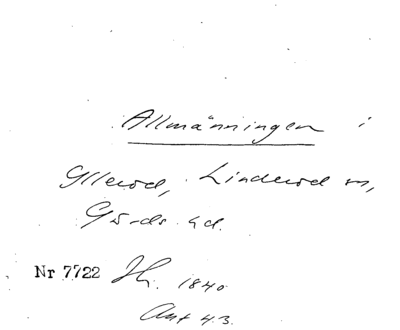 Allmänningen i
Yllerod, Linderod sn,
Gärds hd.
Nr 7722 Hk. 1840
Aut 43.